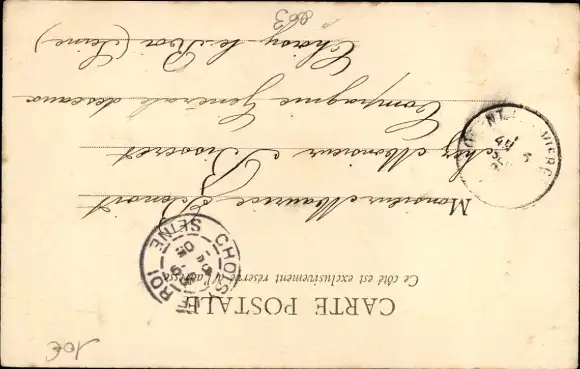 CARTE POSTALE
Ce côté est exclusivement réservé à l'adresse
Monsieur Maurice
chez Monsieur Bisseret
Compagnie Générale des eaux
Choisy-le-Roi (Seine)
CHOISY LE ROI
SEINE
863
10€